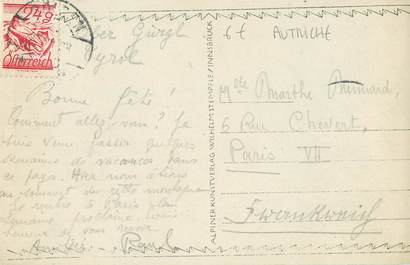 24 g
Österreich
Ober Gürgl
Tyrol
Bonne fête!
Comment allez-vous? Je
suis venu passer quelques
semaines de vacances dans
ce pays. Hier nous étions
au sommet de cette montagne
Je rentre à Paris la
semaine prochaine
heureux de vous revoir
ALPINER KUNSTVERLAG WILHELM STEMPFLE / INNSBRUCK
6 f AUTRICHE
Mlle Marthe
6 Rue Chevert,
Paris VII
Frankreich